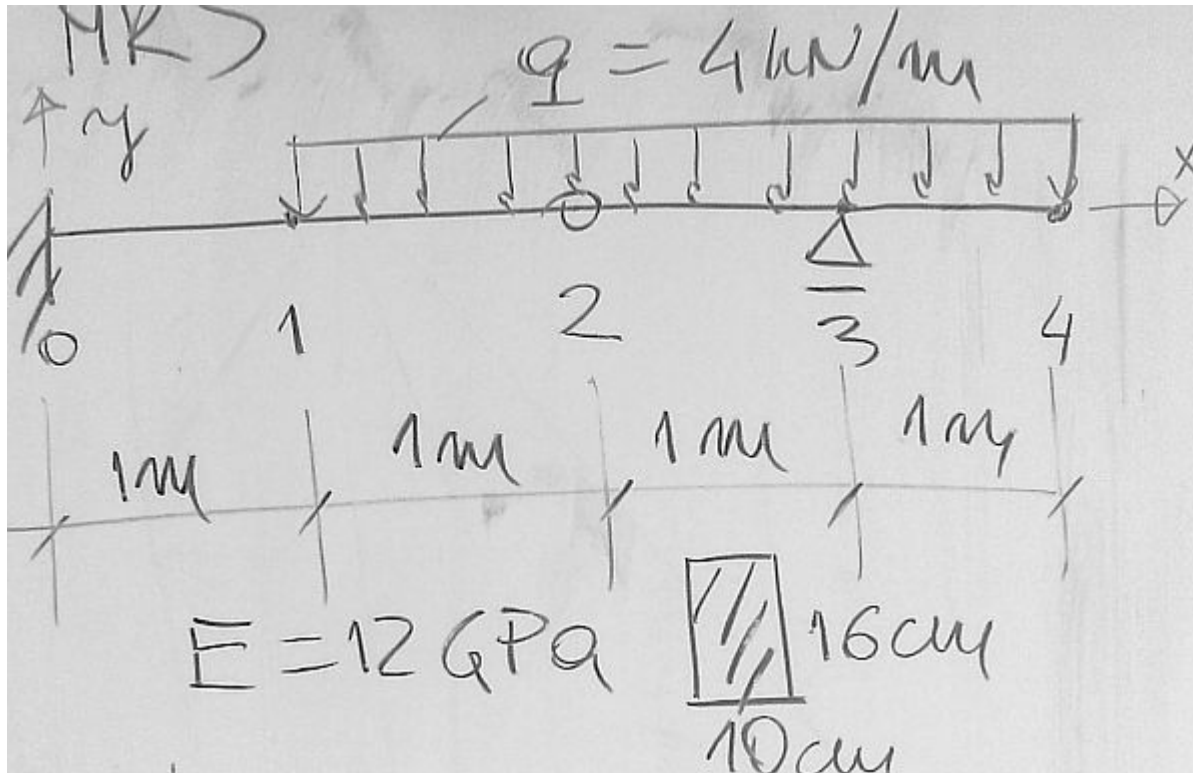 MRS
q = 4 kN/m
y
x
0 1 2 3 4
1m 1m 1m 1m
E = 12 GPa
16cm
10cm